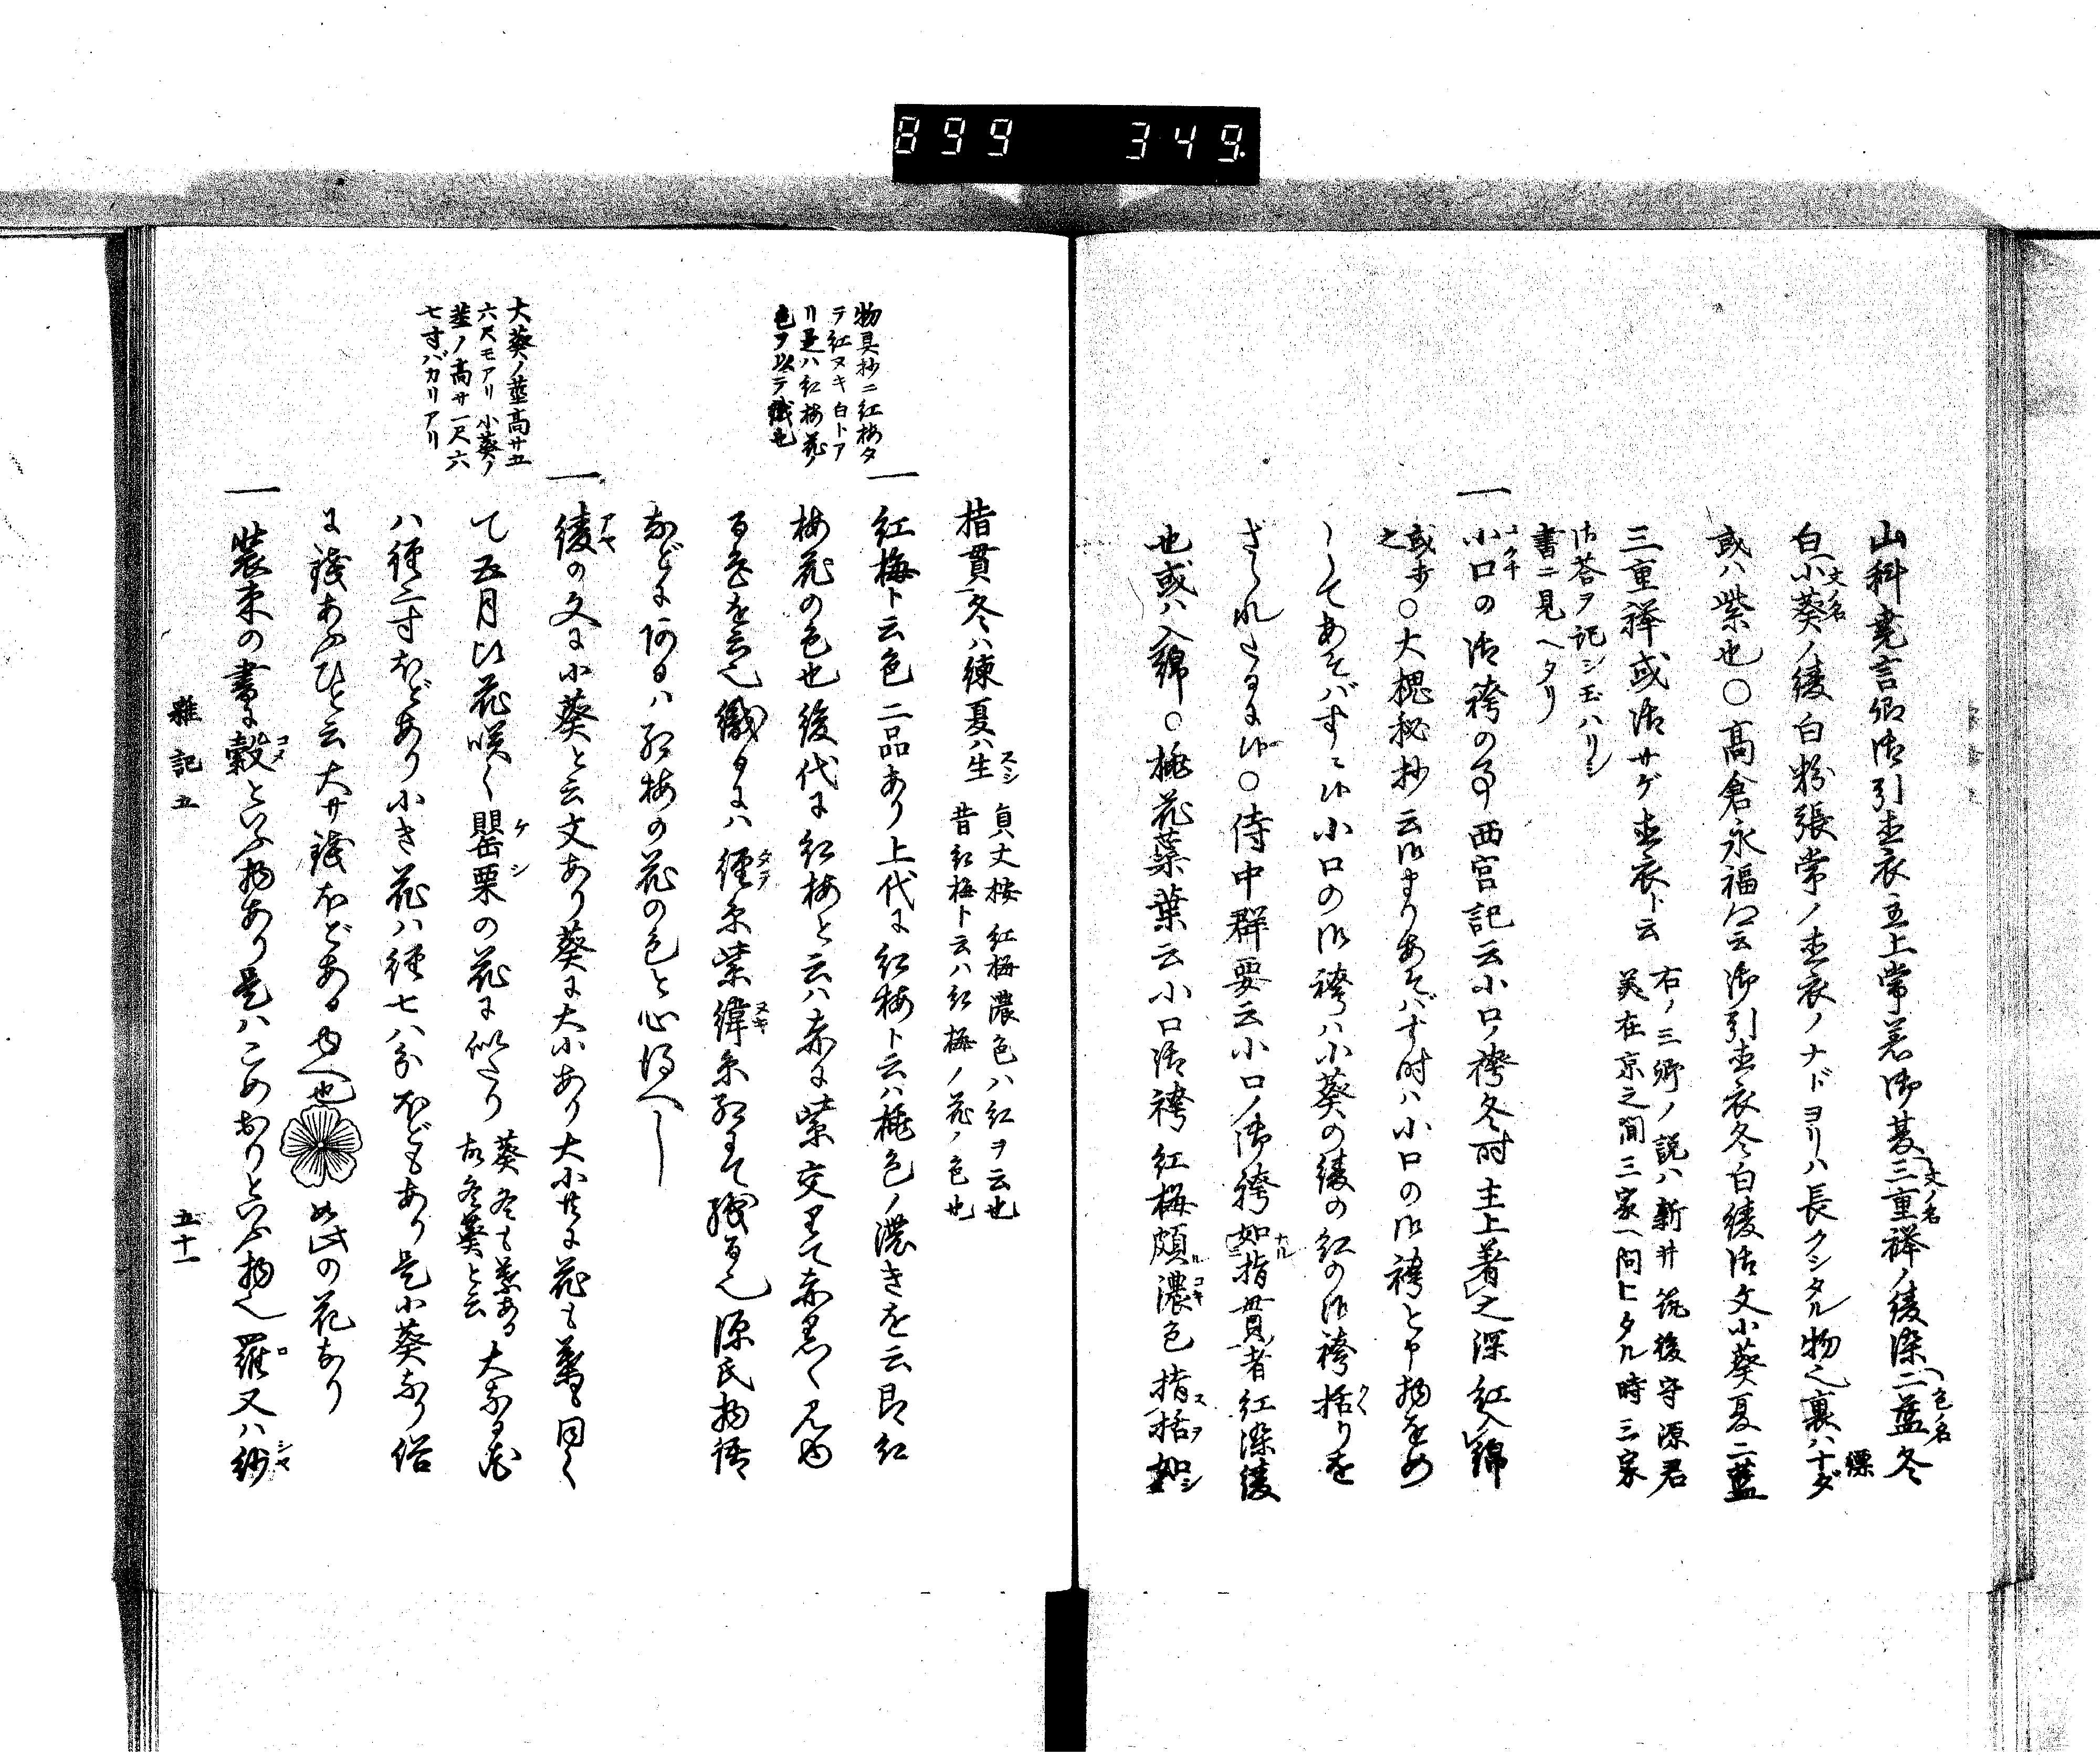 899 349
山科尭言卿御引直衣主上常着御夏三重襷ノ綾染二藍冬
文ノ名
色ノ名
白小葵ノ綾白粉張常ノ直衣ノナドヨリハ長クシタル物也裏ハナダ
文ノ名
縹
或ハ紫也〇高倉永福卿云御引直衣冬白綾御文小葵夏二藍
三重襷或御サゲ直衣ト云
右ノ三卿ノ説ハ新井筑後守源君
美在京之間三家ヘ問ヒタル時三家
御答ヲ記シ玉ハリシ
書ニ見ヘタリ
一 小口の御袴の事西宮記云小口ノ袴冬時主上着之深紅入綿
コクチ
或歩之〇大槐秘抄云御まりあそばす時ハ小口の御袴と申物をめ
してあそばすに候小口の御袴ハ小葵の綾の紅の御袴括りを
クヽ
さゝれたるに候〇侍中群要云小口ノ御袴如指貫者紅染綾
ナル
也或ハ入綿〇桃花蘂葉云小口御袴紅梅頗濃色指括如
ルコキ
スヲ
シ
指貫冬ハ練夏ハ生
スヽシ
貞丈按紅梅濃色ハ紅ヲ云也
昔紅梅ト云ハ紅梅ノ花ノ色也
一 紅梅ト云色二品あり上代に紅梅ト云ハ桃色ノ濃きを云即紅
梅花の色也後代に紅梅と云ハ赤に紫交りて赤黒く見ゆ
る色を云也織るにハ経糸紫緯糸紅にて織る也源氏物語
タテ
ヌキ
などに有るハ紅梅の花の色と心得べし
物具抄ニ紅梅タ
テ紅ヌキ白トア
リ是ハ紅梅花ノ
色ヲ以テ織也
一 綾の文に小葵と云文あり葵に大小あり大小共に花も葉も同く
アヤ
て五月比花咲く罌粟の花に似たり
ケシ
葵冬も葉ある
故冬葵と云
大なる花
ハ径二寸ほどあり小き花ハ径七八分ほどもあり是小葵なり俗
に銭あふひと云大サ銭ほどある故也 如此の花なり
大葵ノ茎高サ五
六尺モアリ小葵ノ
茎ノ高サ一尺六
七寸バカリアリ
一 装束の書に縠といふ物あり是ハこめおりといふ物也羅又ハ紗
コメ
ロ
シヤ
雑記五
五十一